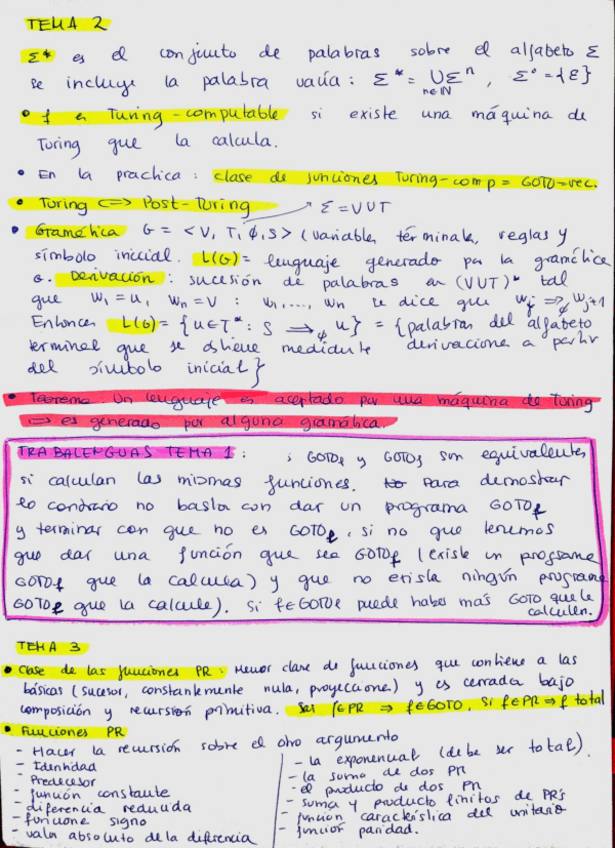 TEMA 2
Σ* es el conjunto de palabras sobre el alfabeto Σ
se incluye la palabra vacía: Σ* = ∪Σⁿ , Σ⁰ = {ε}
n∈ℕ
• f es Turing-computable si existe una máquina de
Turing que la calcula.
• En la practica: clase de funciones Turing-comp = GOTO-rec.
• Turing <=> Post-Turing
Σ = VUT
• Gramática G = <V, T, ϕ, S> (variables, terminales, reglas y
símbolo inicial. L(G) = lenguaje generado por la gramática
G. Derivación: sucesión de palabras en (VUT)* tal
que W₁ = u, Wn = V : W₁, ..., Wn se dice que Wj =>ϕ Wj+1
Entonces L(G) = {u∈T* : S =>ϕ u} = {palabras del alfabeto
terminal que se obtiene mediante derivaciones a partir
del símbolo inicial}
• Teorema. Un lenguaje es aceptado por una máquina de Turing
<=> es generado por alguna gramática.
TRABALENGUAS TEMA 1: ¿ GOTO y GOTO son equivalentes
si calculan las mismas funciones. Para demostrar
lo contrario no basta con dar un programa GOTO
y terminar con que no es GOTO, si no que tenemos
que dar una función que sea GOTO (existe un programa
GOTO que la calcula) y que no exista ningún programa
GOTO que la calcule). Si f∈GOTO puede haber más GOTO que le
calculen.
TEMA 3
• Clase de las funciones PR: Menor clase de funciones que contiene a las
básicas (sucesor, constantemente nula, proyecciones) y es cerrada bajo
composición y recursión primitiva. f∈PR => f∈GOTO, Si f∈PR => f total
• Funciones PR
- Hacer la recursión sobre el otro argumento
- Identidad
- Predecesor
- función constante
- diferencia reducida
- funcione signo
- valor absoluto de la diferencia
- la exponencial (debe ser total).
- la suma de dos PR
- el producto de dos PR
- suma y producto finitos de PR's
- función característica del unitario
- función paridad.